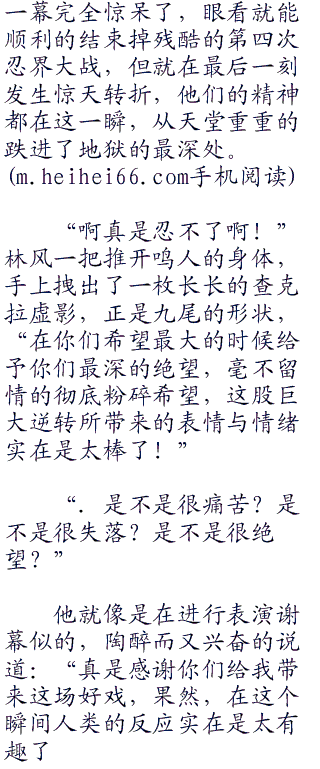 一幕完全惊呆了，眼看就能
顺利的结束掉残酷的第四次
忍界大战，但就在最后一刻
发生惊天转折，他们的精神
都在这一瞬，从天堂重重的
跌进了地狱的最深处。
(m.heihei66.com手机阅读)
“啊真是忍不了啊！”
林风一把推开鸣人的身体，
手上拽出了一枚长长的查克
拉虚影，正是九尾的形状，
“在你们希望最大的时候给
予你们最深的绝望，毫不留
情的彻底粉碎希望，这股巨
大逆转所带来的表情与情绪
实在是太棒了！”
“．是不是很痛苦？是
不是很失落？是不是很绝
望？”
他就像是在进行表演谢
幕似的，陶醉而又兴奋的说
道：“真是感谢你们给我带
来这场好戏，果然，在这个
瞬间人类的反应实在是太有
趣了